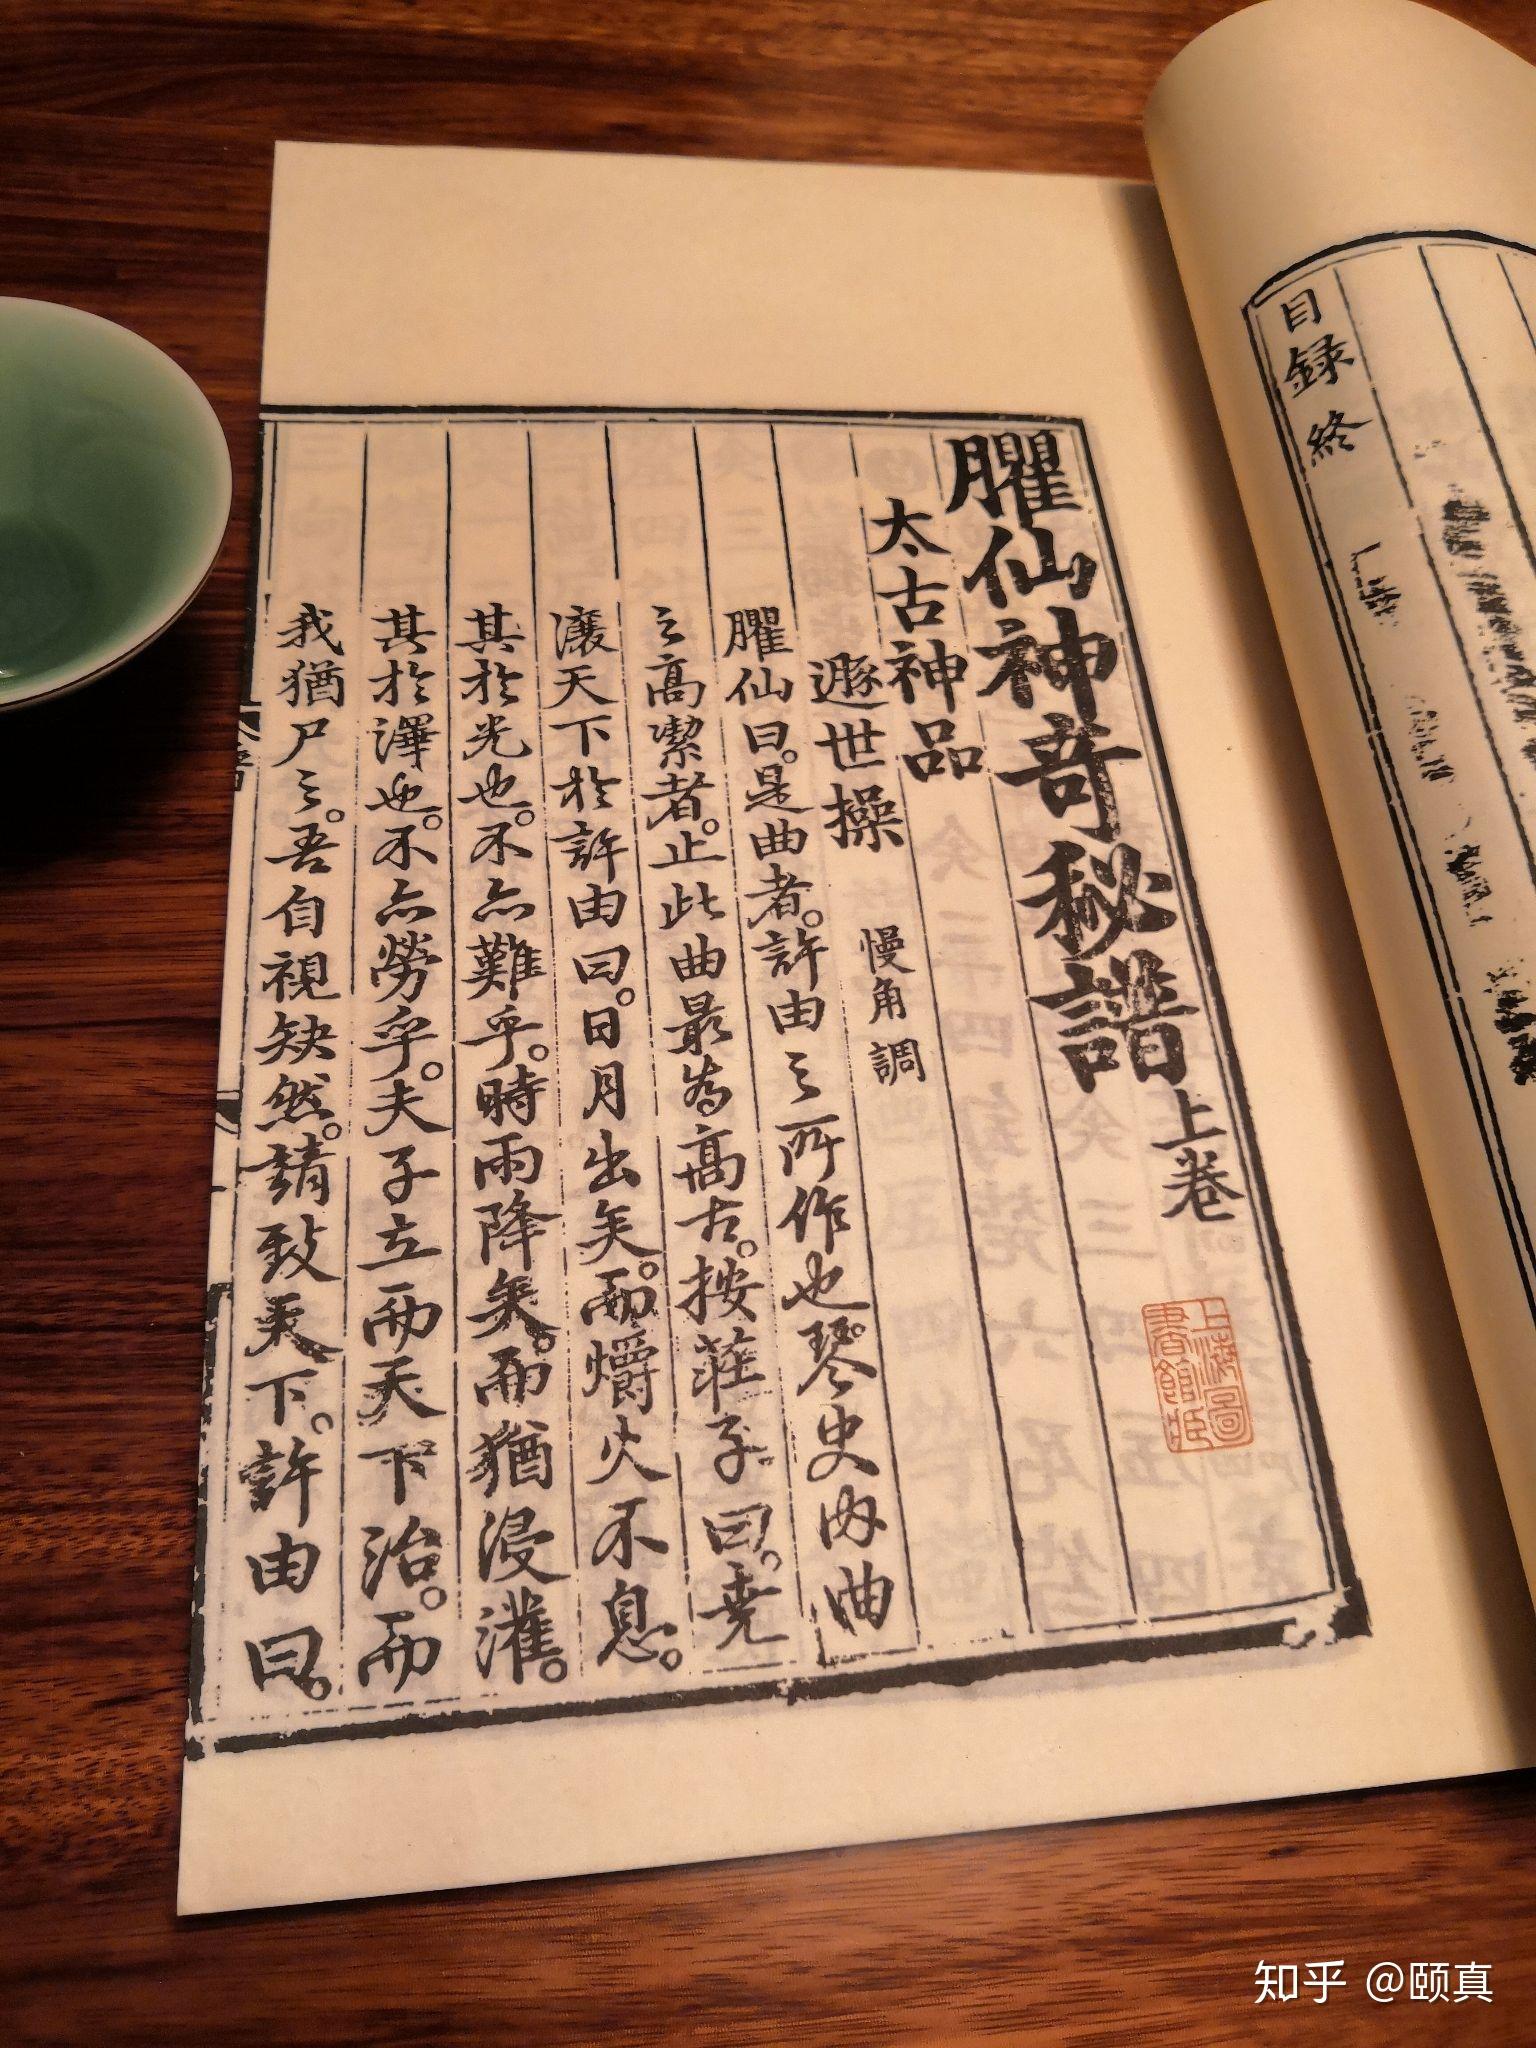 目録終
臞仙神奇秘譜上卷
太古神品
遯世操 慢角調
臞仙曰。是曲者。許由之所作也。琴史内曲
之高潔者。止此曲最為高古。按莊子曰。堯
讓天下於許由曰。日月出矣。而爝火不息。
其於光也。不亦難乎。時雨降矣。而猶浸灌。
其於澤也。不亦勞乎。夫子立而天下治。而
我猶尸之。吾自視缺然。請致天下。許由曰。
上海圖
書館藏
知乎 @颐真